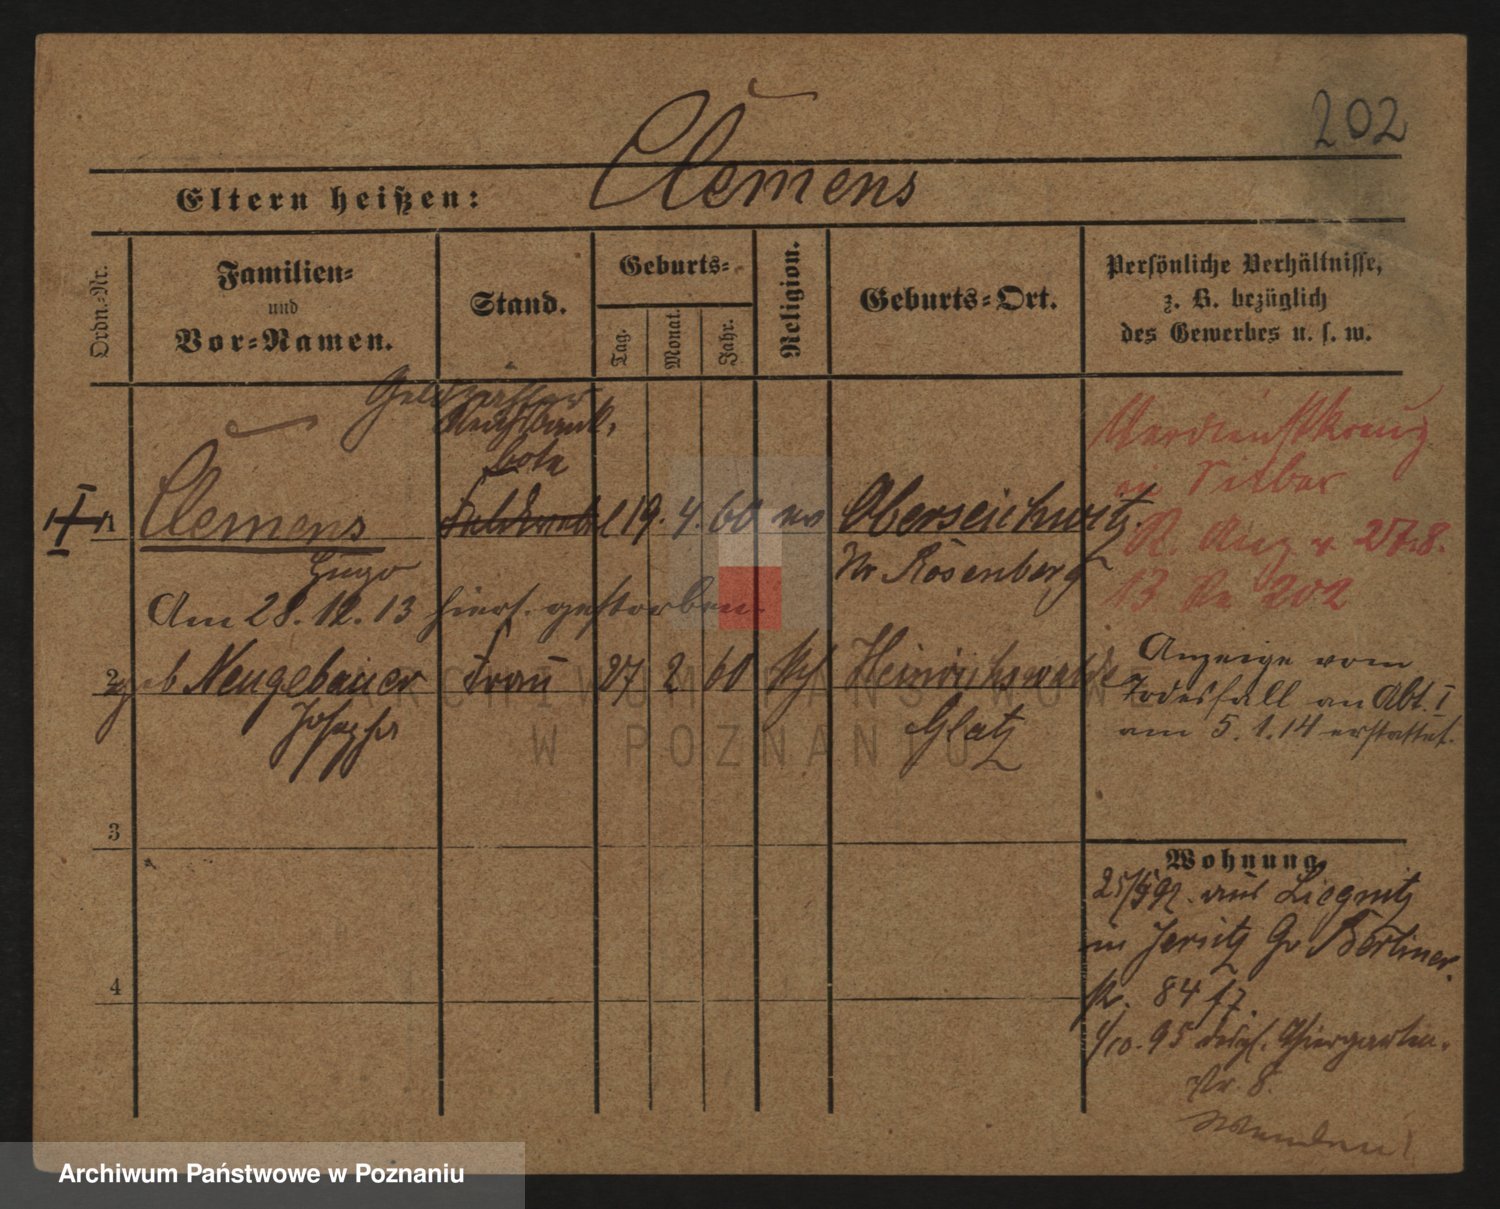 202
Clemens
Eltern heißen:
Ordn.-Nr.
Familien-
und
Vor-Namen.
Stand.
Geburts-
Tag.
Monat.
Jahr.
Religion.
Geburts-Ort.
Persönliche Verhältnisse,
z. B. bezüglich
des Gewerbes u. s. w.
Geldzähler
Reichsbank-
bote
1 Clemens Feldwebel 19. 4. 60 ev Oberseichwitz.
Hugo
Kr Rosenberg
Am 28.12.13 hiers. gestorben.
2 geb Neugebauer Frau 27 2 60 kth Heinrichswalde
Josepha
Glatz
3
4
Verdienstkreuz
in Silber
R. Anz v 27.8.
13 No 202
Anzeige vom
Todesfall an Abt. I
am 5.1.14 erstattet.
Wohnung
25/5 92. aus Liegnitz
in Jersitz Gr Berliner-
str. 84 fz.
1/10. 95 desgl. Thiergarten-
str 8.
Wenden!
ARCHIWUM PAŃSTWOWE
W POZNANIU
Archiwum Państwowe w Poznaniu